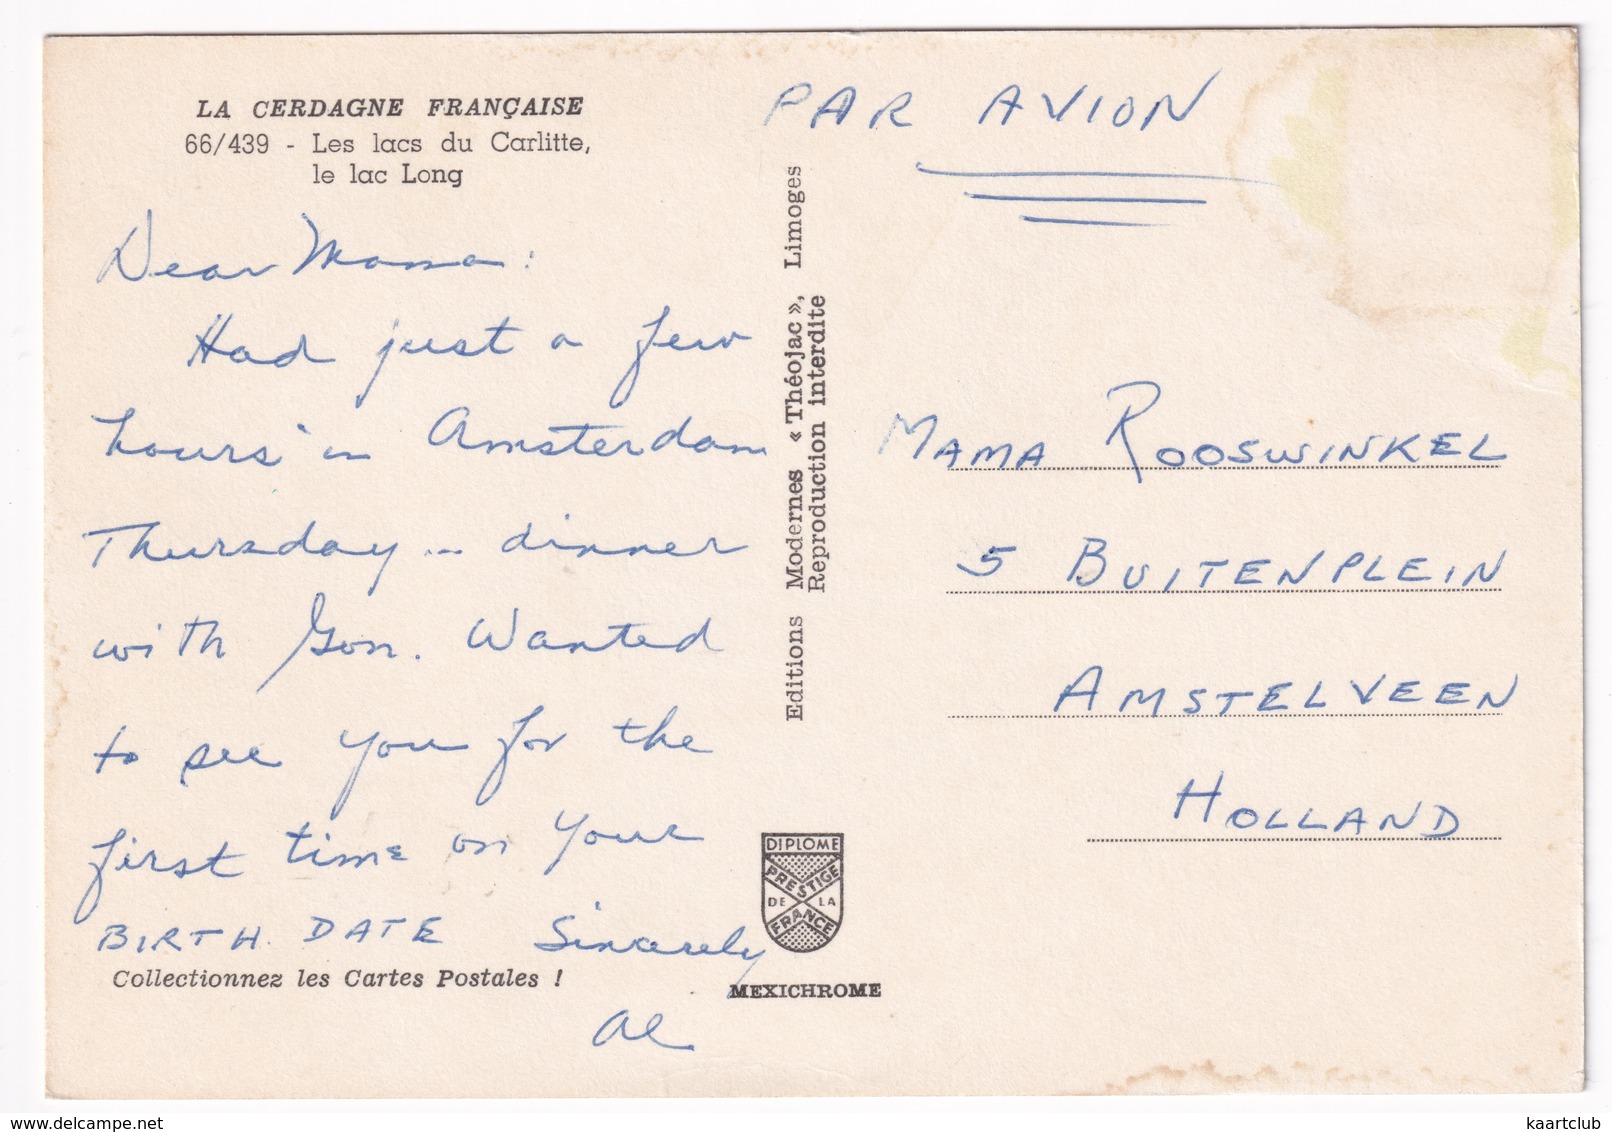 LA CERDAGNE FRANÇAISE
66/439 - Les lacs du Carlitte,
le lac Long
Dear Mama:
Had just a few
hours in Amsterdam
Thursday... dinner
with Gon. Wanted
to see you for the
first time on your
BIRTH. DATE Sincerely
Al
Collectionnez les Cartes Postales !
Editions Modernes « Théojac », Limoges
Reproduction interdite
DIPLOME
PRESTIGE
DE LA
FRANCE
MEXICHROME
PAR AVION
MAMA ROOSWINKEL
5 BUITENPLEIN
AMSTELVEEN
HOLLAND
www.delcampe.net
kaartclub